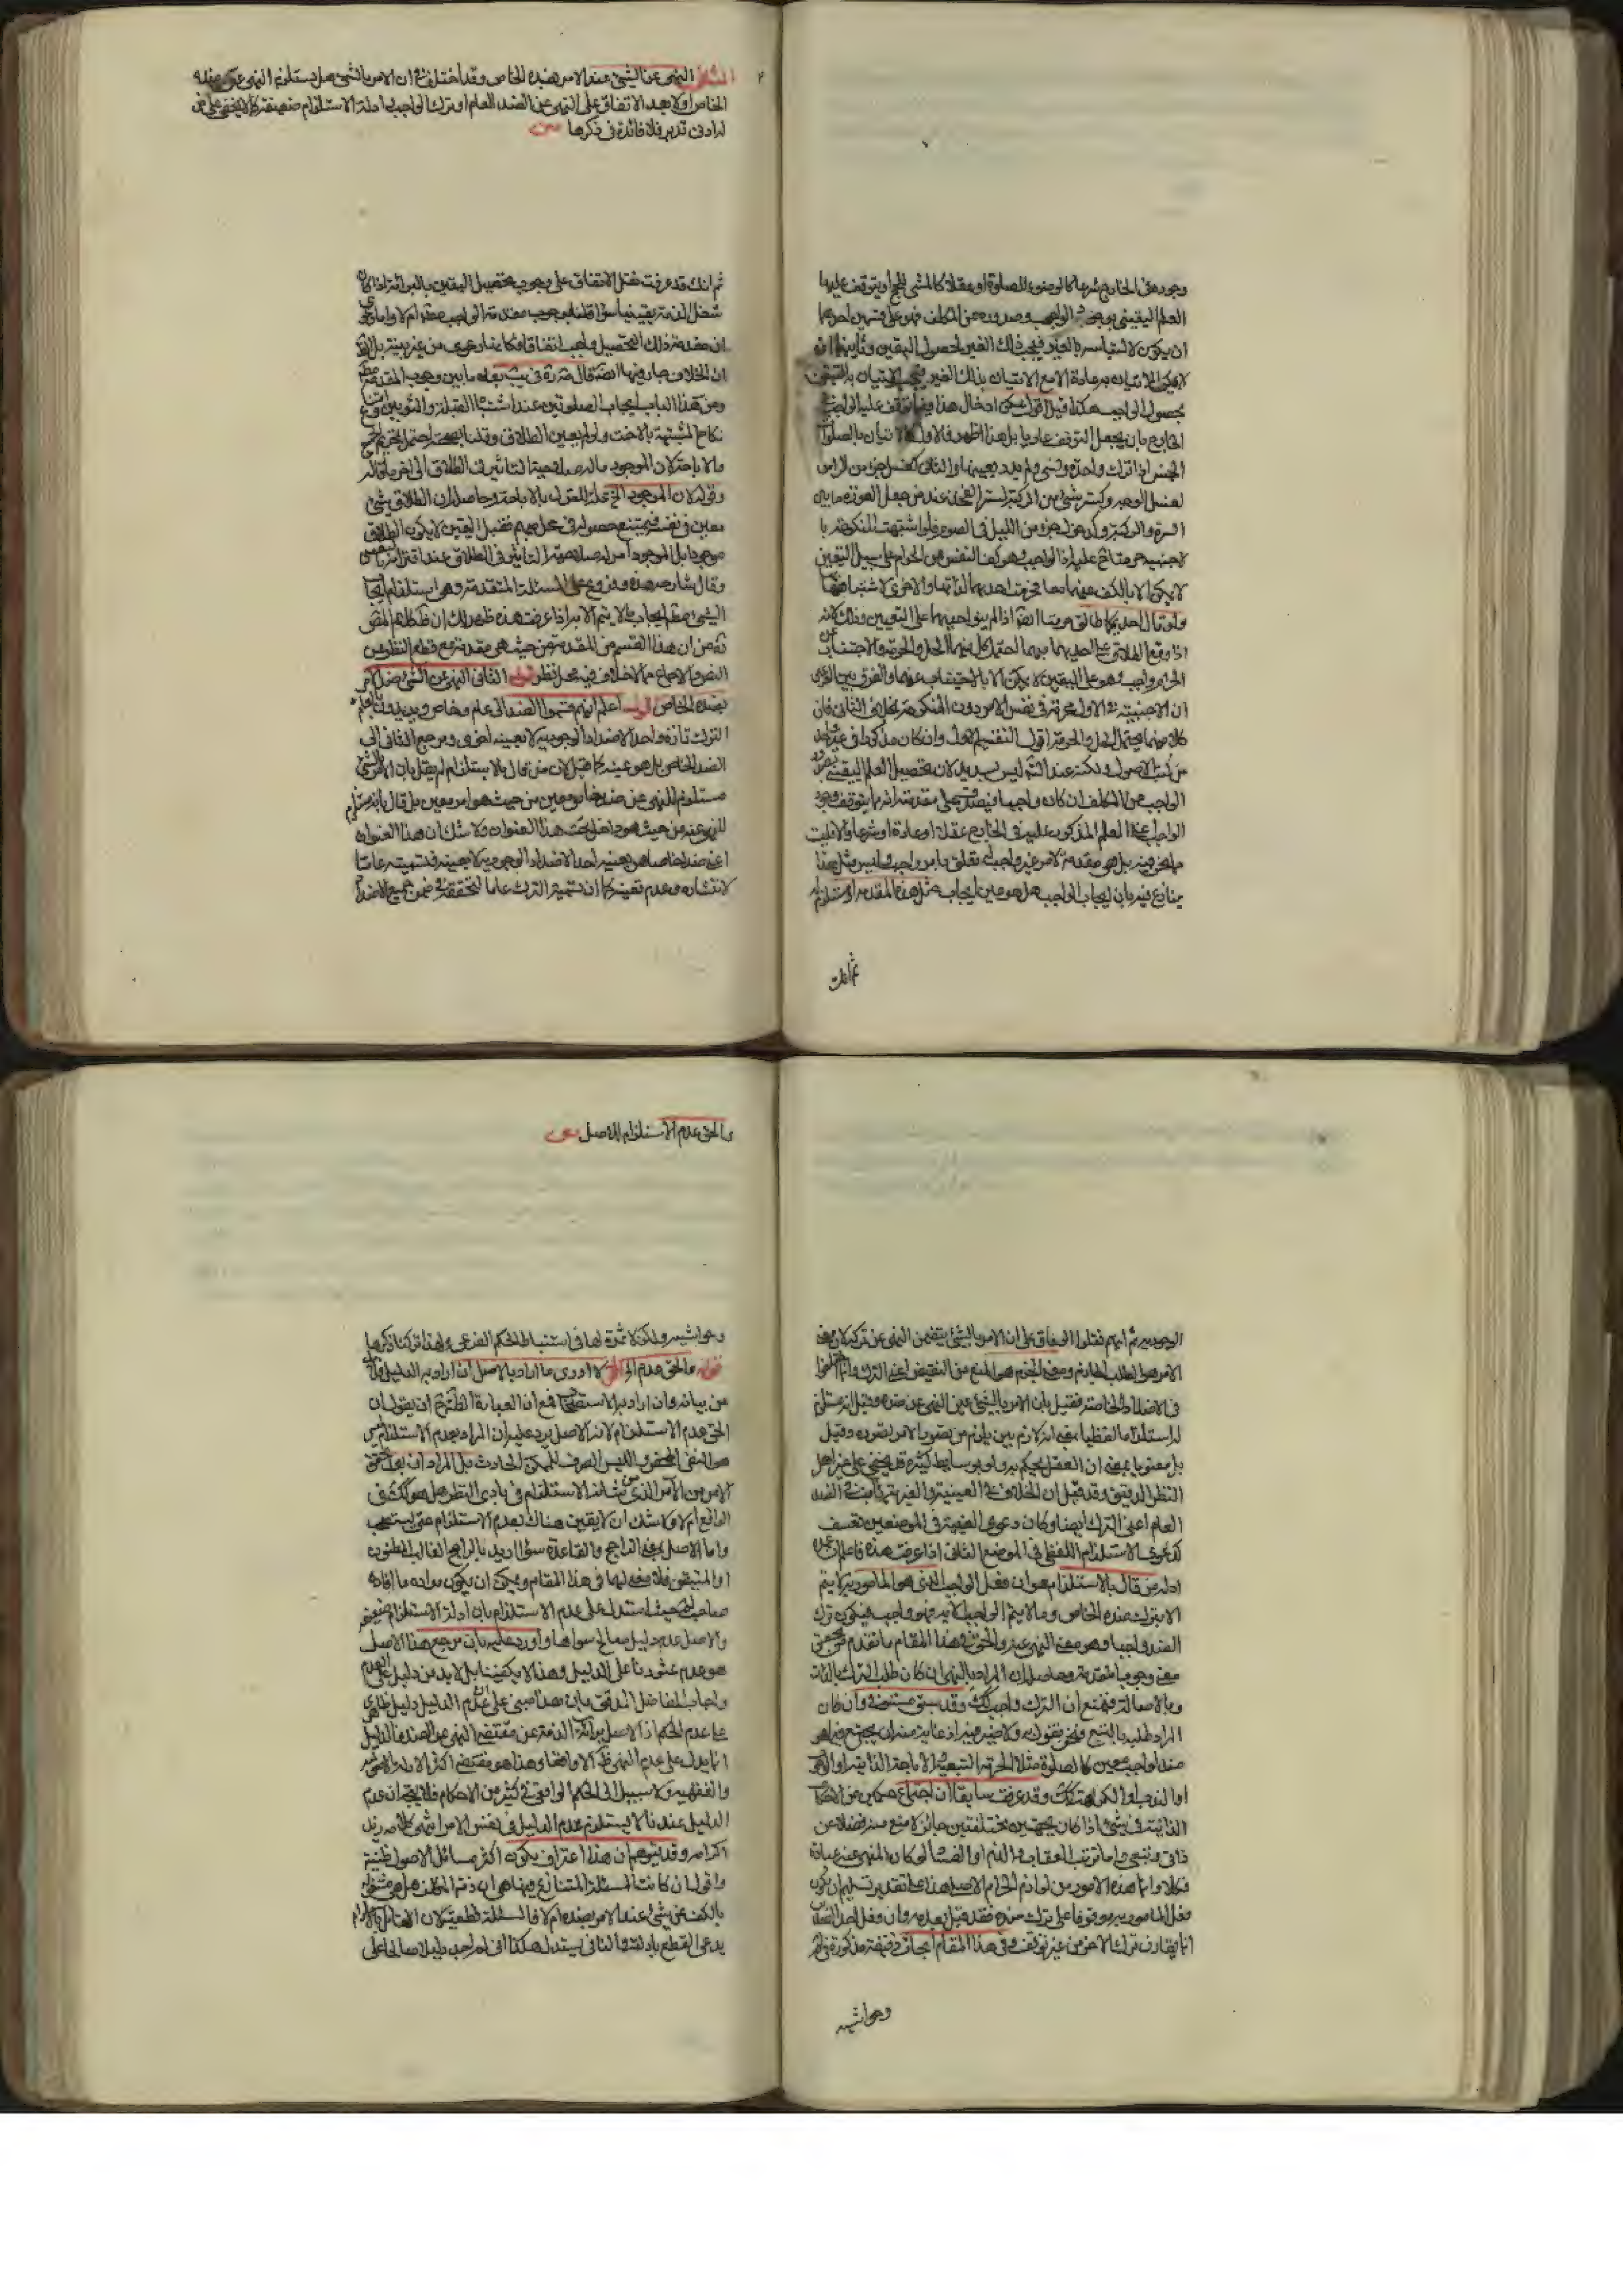 وجوده في الخارج شرعا كالوضوء للصلوة او عقلا كالمشي للحج او يتوقف عليها
العلم اليقيني بوجود الواجب وصدوره عن المكلف فهو على قسمين احدهما
ان يكون لالتباسه بالغير فيجب ذلك الغير لحصول اليقين وثانيهما ان
لا يمكن الاتيان به عادة الا مع الاتيان بذلك الغير فيجب الاتيان به لليقين
بحصول الواجب هكذا قيل اقول يمكن ادخال هذا فيما يتوقف عليه الواجب
الخارج بان يجعل التوقف عاديا بل هذا اظهر فالاول كالاتيان بالصلوات
الخمس اذا ترك واحدة ونسي ولم يدر بعينها والثاني كغسل جزء من الراس
لغسل الوجه وكستر شيء من الركبة لستر الفخذ عند من جعل العورة ما بين
السرة والركبة وكدخول جزء من الليل في الصوم فلو اشتبهت المنكوحة با
لاجنبية حرمتا عليه اذ الواجب وهو كف النفس عن الحرام على سبيل اليقين
لا يمكن الا بالكف عنهما معا فحرمت احديهما لذاتها والاخرى لاشتباهها
ولو قال احديكما طالق حرمتا ايضا اذا لم ينو احديهما على التعيين وذلك لانه
اذا وقع الطلاق على احديهما مبهما احتمل كل منهما الحل والحرمة والاجتناب عن
الحرام واجب وهو على اليقين لا يمكن الا بالاجتناب عنهما والفرق بين الصورتين
ان الاجنبية في الاول محرمة في نفس الامر دون المنكوحة بخلاف الثاني فان
كلا منهما يحتمل الحل والحرمة اقول التقسيم الاول وان كان مذكورا في غير واحد
من كتب الاصول ولكنه عند التامل ليس بسديد لان تحصيل العلم اليقيني بصدور
الواجب عن المكلف ان كان واجبا فيصدق على مقدمته انه ما يتوقف وجود
الواجب هذا العلم المذكور عليه في الخارج عقلا او عادة او شرعا والا فليست
مما نحن فيه بل هي مقدمة لامر غير واجب له تعلق بامر واجب وليس مثل هذا
ينازع فيه بان ايجاب الواجب هل هو عين ايجاب مثل هذه المقدمة او مستلزم له
ثم انك
الثاني النهي عن الشيء عند الامر بضده الخاص وقد اختلف في ان الامر بالشيء هل يستلزم النهي عن ضده
الخاص اولا بعد الاتفاق على النهي عن الضد العام او ترك الواجب ادلة الاستلزام ضعيفة كما لا يخفى على من
له ادنى تدبر فلا فائدة في ذكرها متن
ثم انك قد عرفت نقل الاتفاق على وجوب تحصيل اليقين بالبرائة اذا كان
شغل الذمة يقينيا سواء قلنا بوجوب مقدمة الواجب مطلقا ام لا واما دعوى
ان مقدمة ذلك التحصيل واجب اتفاقا وكانها دعوى من غير بينة بل الحق
ان الخلاف جار فيها ايضا قال
ومن هذا الباب ايجاب الصلوتين عند اشتباه القبلة والثوبين
نكاح المشتبهة بالاخت ولو لم يعين الطلاق وقلنا بصحته احتمل تحريم الجميع
والاباحة لان الموجود ما له صلاحية التاثير في الطلاق الى اخر ما قاله
وقوله لان الموجود الخ علة للقول بالاباحة وحاصله ان الطلاق شيء
معين في نفسه فيمتنع حصوله في محل مبهم فقبل التعيين لا يكون الطلاق
موجودا بل الموجود امر له صلاحية التاثير في الطلاق عند اقتران
وقال شارحه هذه فروع على المسئلة المتقدمة وهي استلزام ايجاب
الشيء مطلقا ايجاب ما لا يتم الا به اذا عرفت هذه ظهر لك ان ظ كلام المص
ره من ان هذا القسم من المقدمة من حيث هي مقدمة مع قطع النظر عن
النص والاجماع مما لا خلاف فيه محل نظر قوله الثاني النهي عن الشيء عند الامر
بضده الخاص اقول اعلم انهم قسموا الضد الى عام وخاص ويريدون بالعام
الترك تارة واحد الاضداد الوجودية لا بعينه اخرى ويرجع الثاني الى
الضد الخاص بل هو عينه كما قيل لان من قال بالاستلزام لم يقل بان الامر بالشيء
مستلزم للنهي عن ضد خاص معين من حيث هو امر معين بل قال بانه مستلزم
للنهي عنه من حيث هو داخل تحت هذا العنوان ولا شك ان هذا العنوان
اعني ضدا خاصا هو بعينه احد الاضداد الوجودية لا بعينه فتسميته عاما
لانتشاره وعدم تعينه كما ان تسمية الترك عاما لتحققه في ضمن جميع الاضداد
الوجودية ثم انهم نقلوا الوفاق على ان الامر بالشيء يتضمن النهي عن تركه لان معنى
الامر هو الطلب الجازم ومعنى الجزم هو المنع من النقيض اعني الترك وانما اختلفوا
في الاضداد الخاصة فقيل بان الامر بالشيء عين النهي عن ضده وقيل انه مستلزم
له استلزاما لفظيا بمعنى انه لازم بين يلزم من تصور الامر تصوره وقيل
بل معنويا بمعنى ان العقل يحكم به ولو بوسايط كثيرة قد يخفى على غير اهل
النظر الدقيق وقد قيل ان الخلاف في العينية والغيرية ثابت في الضد
العام اعني الترك ايضا وكان دعوى العينية في الموضعين تعسف
كدعوى الاستلزام اللفظي في الموضع الثاني اذا عرفت هذه فاعلم ان عمدة
ادلة من قال بالاستلزام هو ان فعل الواجب الذي هو المامور به لا يتم
الا بترك ضده الخاص وما لا يتم الواجب الا به فهو واجب فيكون ترك
الضد واجبا وهو معنى النهي عنه والحق في هذا المقام ما تقدم من تحقيق
معنى وجوب المقدمة وحاصله ان المراد بالنهي ان كان طلب الترك بالذات
وبالاصالة فنمنع ان الترك واجب كك وقد سبق مستوفى وان كان
المراد طلبه بالتبع فنحن نقول به ولا ضير فيه اذ غاية منه ان يجتمع فيما هو
ضد لواجب معين كالصلوة مثلا الحرمة التبعية الاباحة الذاتية او الوجوب
او الندب او الكراهة كك وقد عرفت سابقا ان اجتماع حكمين من الاحكام
الذاتية في شيء اذا كان بجهتين مختلفتين جائز لا منع منه فضلا عن
ذاتي وتبعي واما ترتب العقاب والذم او الفساد لو كان المنهي عنه عبادة
فكلا وانما هذه الامور من لوازم الحرام الاصلي هذا على تقدير تسليم ان يكون
فعل المامور به موقوفا على ترك ضده فقد قيل بعدمه وان فعل احد الضدين
انما يقارن ترك الاخر من غير توقف وفي هذا المقام ابحاث دقيقة مذكورة في
وحواشيه
والحق عدم الاستلزام للاصل متن
وحواشيه ولكن لا ثمرة لها في استنباط الحكم الفرعي ولهذا تركنا ذكرها
قوله والحق عدم الخ اقول لا ادري ما اراد بالاصل ان اراد به الدليل فلا بد
من بيانه وان اراد به الاستصحاب فمع ان العبارة الظاهرة ح ان يقول ان
الحق عدم الاستلزام لانه الاصل يرد عليه ان المراد بعدم الاستلزام ليس
هو النفي المحض والليس الصرف للممكن الحادث بل المراد ان بعد تحقق
الامر من الامر الذي من شانه الاستلزام في بادي النظر هل هو كك في
الواقع ام لا ولا شك ان لا يقين هناك بعدم الاستلزام حتى يستصحب
واما الاصل بمعنى الراجح والقاعدة سواء اريد بالراجح الغالب المظنون
او المتيقن فلا معنى لهما في هذا المقام ويمكن ان يكون مراده ما افاده
صاحب حيث استدل على عدم الاستلزام بان ادلة الاستلزام ضعيفة
والاصل عدم دليل صالح سواها واورد عليه بان مرجع هذا الاصل
هو عدم عثورنا على الدليل وهذا لا يكفينا بل لا بد من دليل على العدم
واجاب الفاضل المدقق بان هذا مبني على ان عدم الدليل دليل ظاهري
على عدم الحكم اذ الاصل برائة الذمة عن مقتضى النهي عن الضد فالدليل
انما يدل على عدم النهي ظاهرا لا واقعا وهذا هو مقتضى اكثر الادلة الاصولية
والفقهية ولا سبيل الى الحكم الواقعي في كثير من الاحكام فلا يتجه ان عدم
الدليل عندنا لا يستلزم عدم الدليل في نفس الامر انتهى كلامه زيد
اكرامه وقد يتوهم ان هذا اعتراف بكون اكثر مسائل الاصول ظنية
واقول ان كانت المسئلة المتنازع فيها هي ان ذمة المكلف هل هي مشغولة
بالكف عن شيء عند الامر بضده ام لا فالمسئلة قطعية لان القائل بالاستلزام
يدعي القطع بادلته والنافي يستدل هكذا اني لم اجد دليلا صالحا على